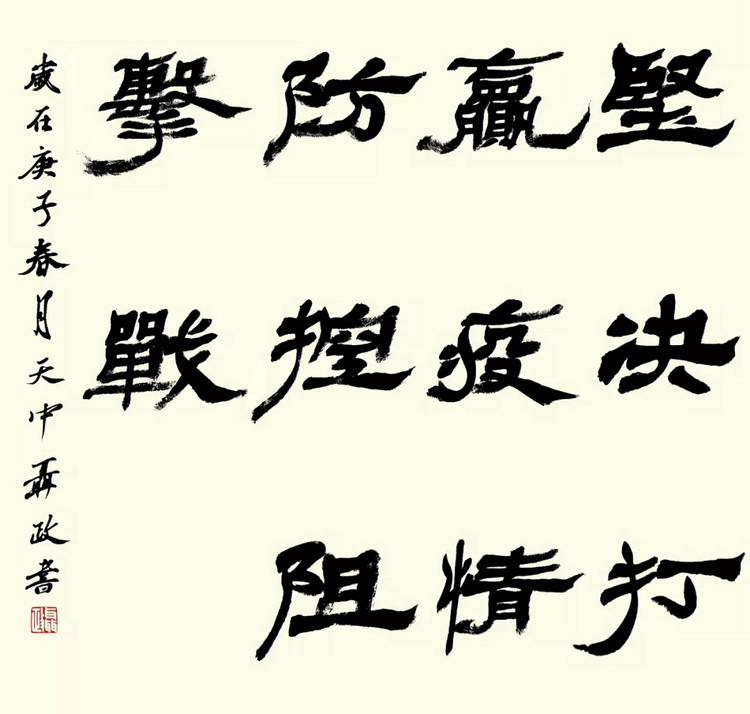 堅决打
贏疫情
防控阻
擊戰
歲在庚子春月天中聶政書